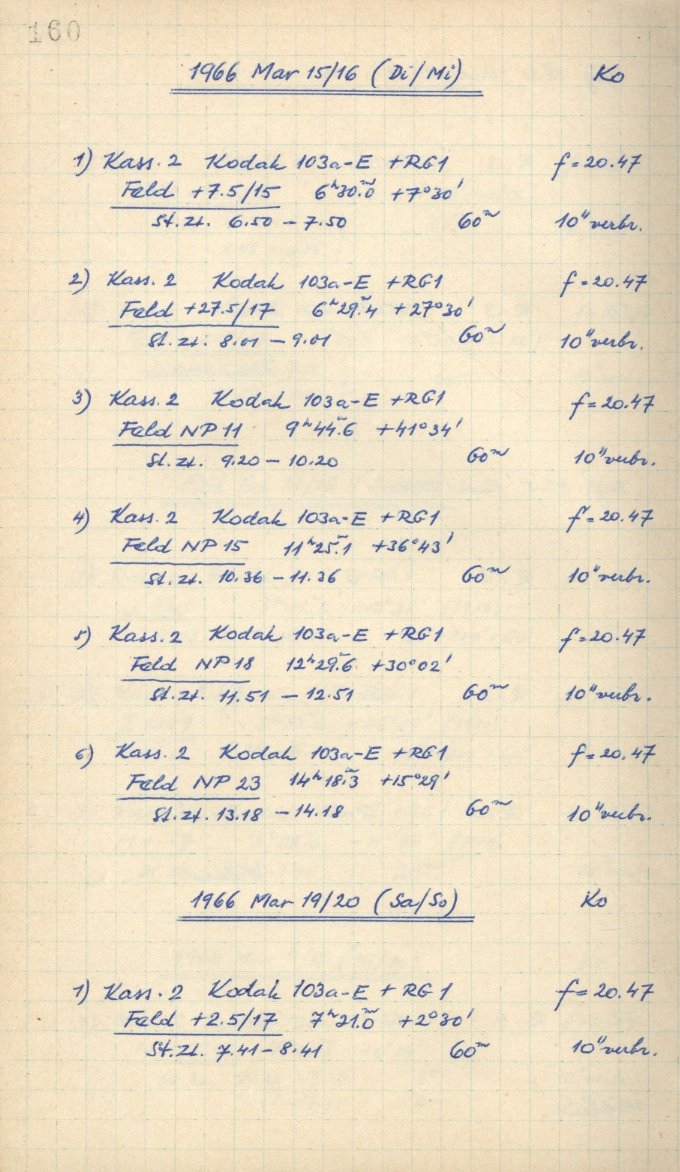 160
1966 Mar 15/16 (Di/Mi) Ko
1) Kass. 2 Kodak 103a-E +RG1 f = 20.47
Feld +7.5/15 6ʰ30ᵐ.0 +7°30'
St.zt. 6.50 - 7.50 60ᵐ 10" verbr.
2) Kass. 2 Kodak 103a-E +RG1 f = 20.47
Feld +27.5/17 6ʰ29ᵐ.4 +27°30'
St.zt. 8.01 - 9.01 60ᵐ 10" verbr.
3) Kass. 2 Kodak 103a-E +RG1 f = 20.47
Feld NP 11 9ʰ44ᵐ.6 +41°34'
St.zt. 9.20 - 10.20 60ᵐ 10" verbr.
4) Kass. 2 Kodak 103a-E +RG1 f = 20.47
Feld NP 15 11ʰ25ᵐ.1 +36°43'
St.zt. 10.36 - 11.36 60ᵐ 10" verbr.
5) Kass. 2 Kodak 103a-E +RG1 f = 20.47
Feld NP 18 12ʰ29ᵐ.6 +30°02'
St.zt. 11.51 - 12.51 60ᵐ 10" verbr.
6) Kass. 2 Kodak 103a-E +RG1 f = 20.47
Feld NP 23 14ʰ18ᵐ.3 +15°29'
St.zt. 13.18 - 14.18 60ᵐ 10" verbr.
1966 Mar 19/20 (Sa/So) Ko
1) Kass. 2 Kodak 103a-E + RG1 f = 20.47
Feld +2.5/17 7ʰ21ᵐ.0 +2°30'
St.zt. 7.41 - 8.41 60ᵐ 10" verbr.